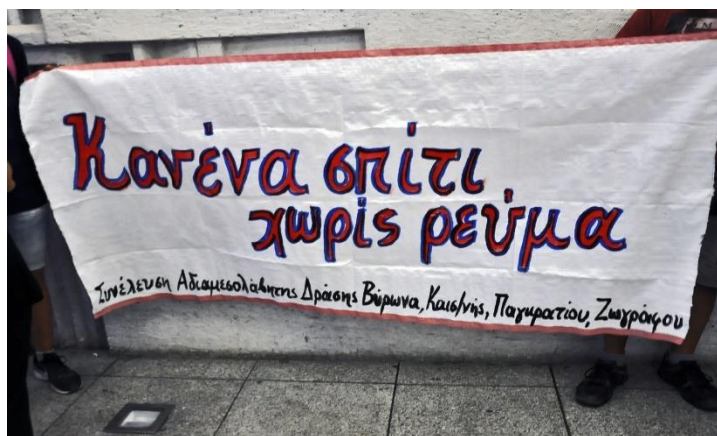 Κανένα σπίτι
χωρίς ρεύμα
Συνέλευση Αδιαμεσολάβητης Δράσης Βύρωνα, Και/νής, Παγκρατίου, Ζωγράφου